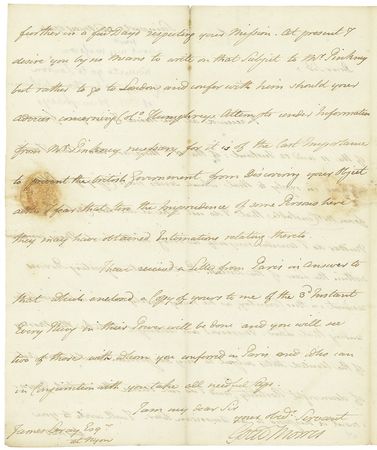 further in a few Days respecting your Mission. At present I
desire you by no means to write on that Subject to Mr. Pinkney
but rather to go to London and confer with him should your
Advices concerning Col. Humphreys Attempts render Information
from Mr. Pinkney necessary for it is of the last Importance
to prevent the British Government from Discovering your Object
and I fear that from the Imprudence of some Persons here
they may have obtained Intimations relating thereto.
I have received a Letter from Paris in answer to
that which enclosed a Copy of yours to me of the 3d Instant
Every Thing in their Power will be done and you will see
two of those with whom you conferred in Paris and who can
in Conjunction with you take all needful Steps.
I am my dear Sir
your obedt. Servant
Gouv Morris
James Leray Esqr.
at Nyon